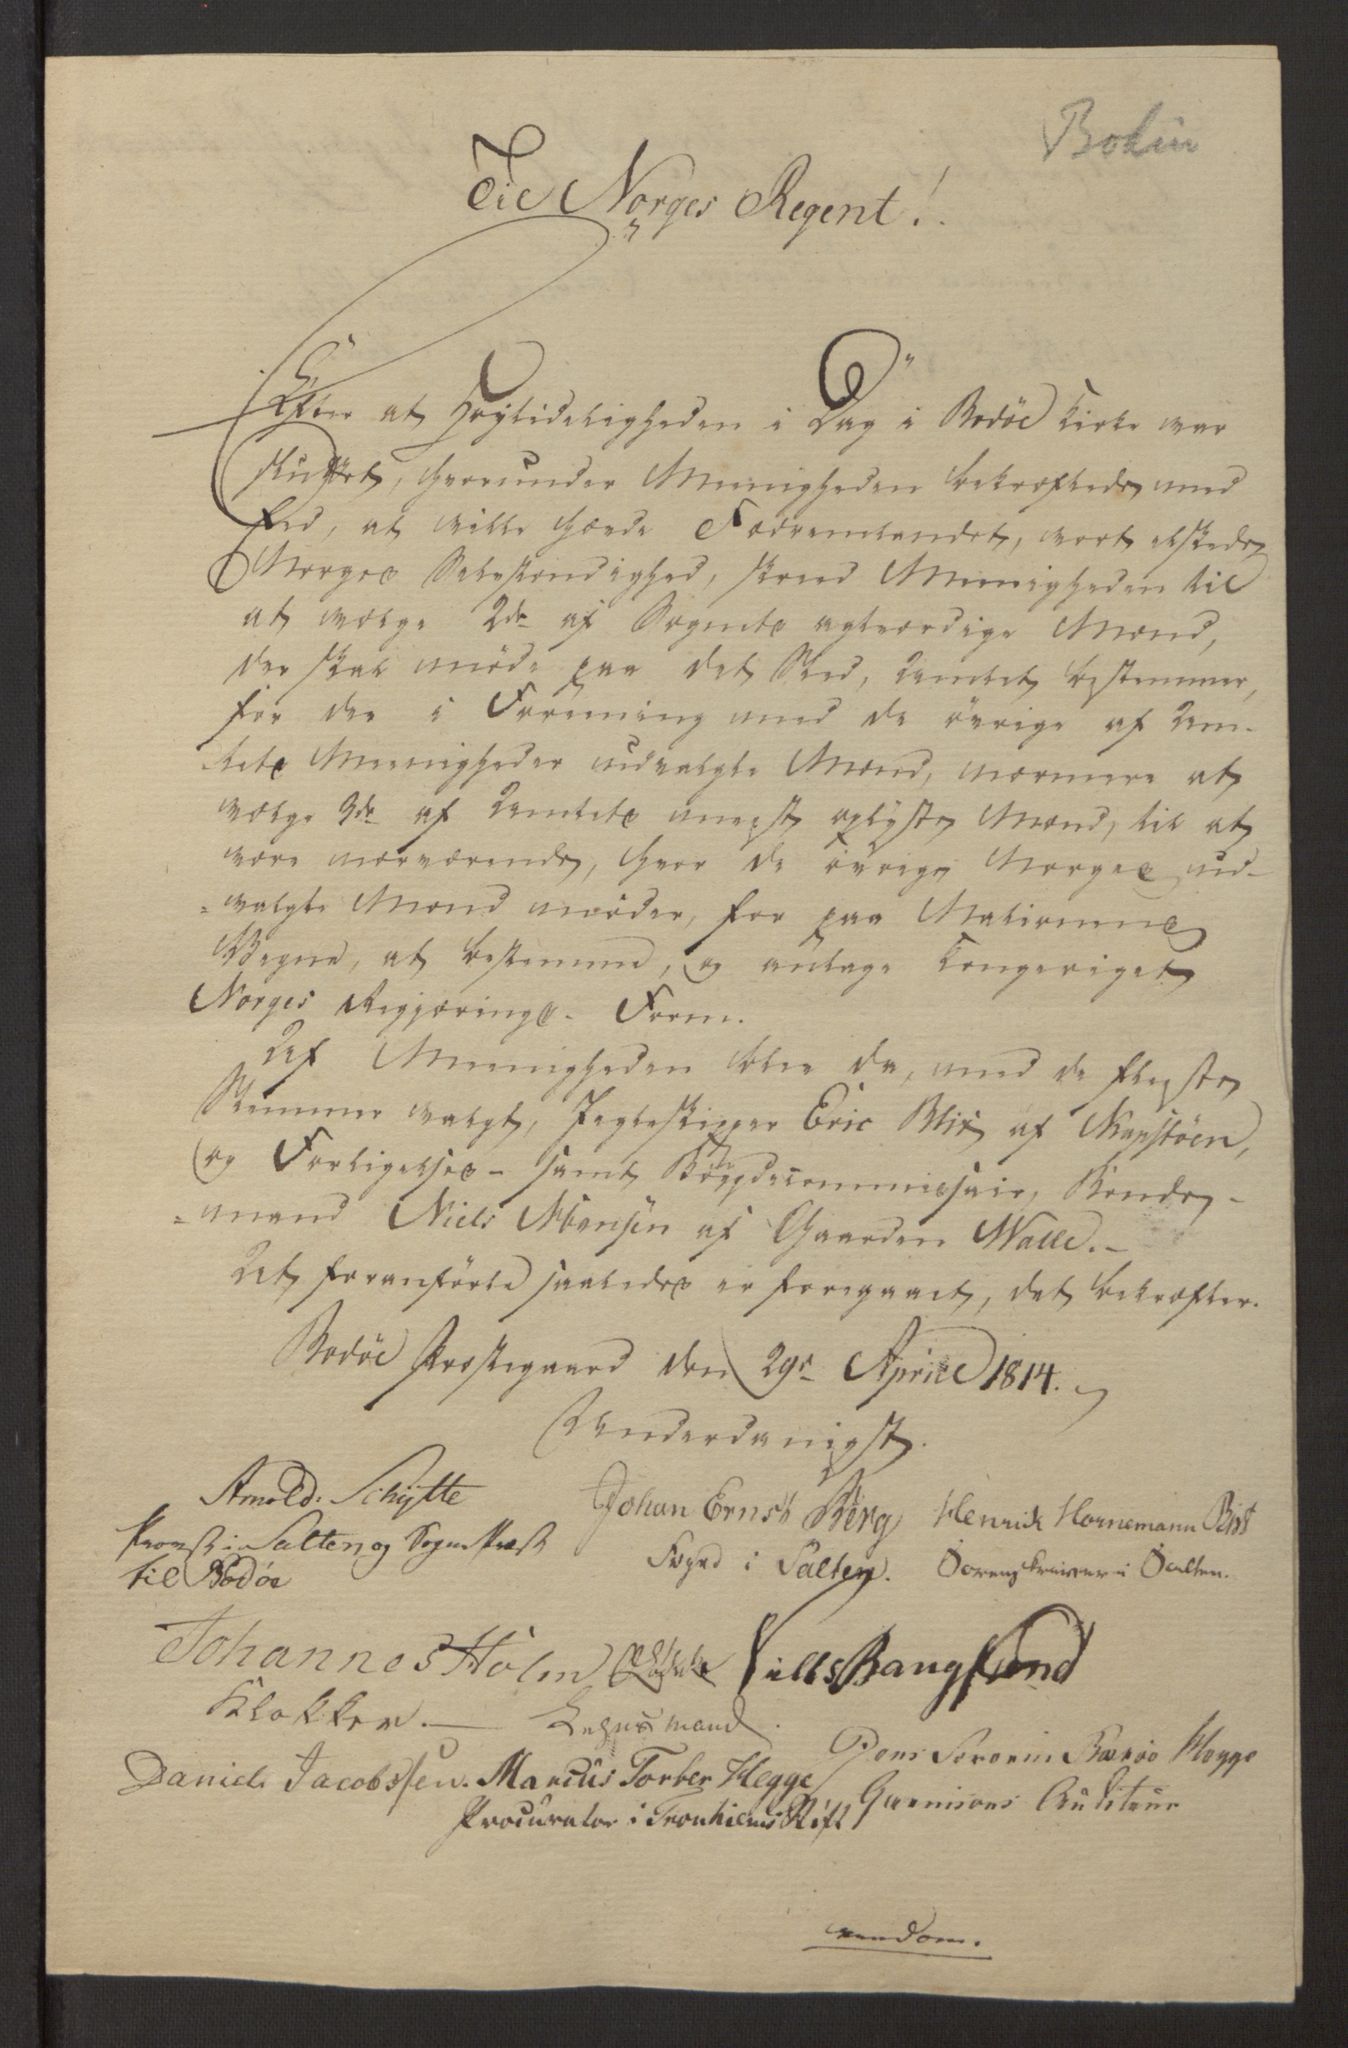 Bodin
Til Norges Regent!
Efter at Høytideligheden i Dag i Bodöe Kirke var
sluttet, hvorunder Menigheden bekræftede med
Eed, at ville hævde Fædrenelandet, vort elskede
Norges Selvstændighed, skreed Menigheden til
at vælge 2de af Sognets agtværdige Mænd,
der skal möde paa det Sted, Amtet bestemmer,
for der i Forening med de övrige af Am-
tets Meenigheder udvalgte Mænd, nærmere at
vælge 3de af Amtets meest oplyste Mænd, til at
være nærværende, hvor de övrige Norges ud-
=valgte Mænd möder, for paa Nationens
Vegne, at bestemme, og antage Kongeriget
Norges Regjerings-Form.
Af Meenigheden blev da, med de fleeste
Stemmer valgt, Jægteskipper Eric Blix af
og Forligelses- samt Bøygdecommissair, Bonde-
=mand Niels Arensen af Gaarden Walle.-
At foranförte saaledes er foregaaet, det bekræfter.
Bodöe Præstegaard den 29de April 1814.
Underdanigst.
Arnold: Schytte
Provst i Salten og Sogne Præst
til Bodöe
Johan Ernst Berg
Foged i Salten.
Henrik Hornemann Blix
Sorenskriver i Salten.
Johannes Holm
Klokker.
Lehnsmand.
Nills Bang Lund
Daniel Jacobssen.
Marcus Torber Hegge
Procurator i Tronhiems Stift
Jens Severin Hegge
Garnisons Auditeur
vendom.